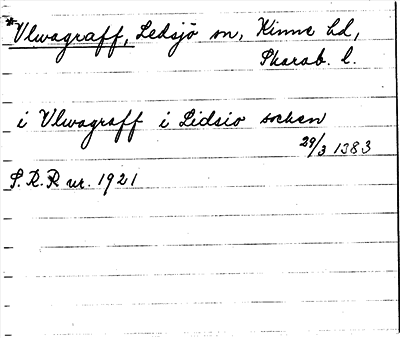 *Vlwagraff, Ledsjö sn, Kinne hd,
Skarab. l.
i Vlwagraff i Lidsio socken
29/3 1383
S.R.P nr. 1921